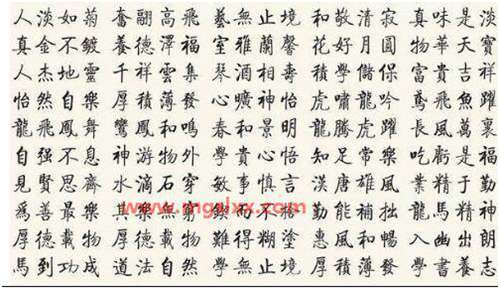 人淡如菊 奮翮高飛 藝無止境 和敬清寂 真味是淡
真金不鍍 養德澤福 室雅蘭馨 花好月圓 物華天寶
人杰地靈 千祥雲集 琴酒相壽 積學儲保 富貴吉祥
怡然自樂 厚積薄發 心曠神怡 虎嘯龍吟 鳶飛魚躍
龍飛鳳舞 鸞鳳和鳴 春和景明 龍騰虎躍 長風萬裏
自强不息 神游物外 學貴心悟 知足常樂 吃虧是福
見賢思齊 水滴石穿 敏事慎言 漢唐雄風 業精於勤
為善最樂 勤能補拙 龍馬精神
厚德載物 難得糊塗 惠風和暢 入幽出朗
馬到功成 道法自然 學無止境 厚積薄發 學書養志